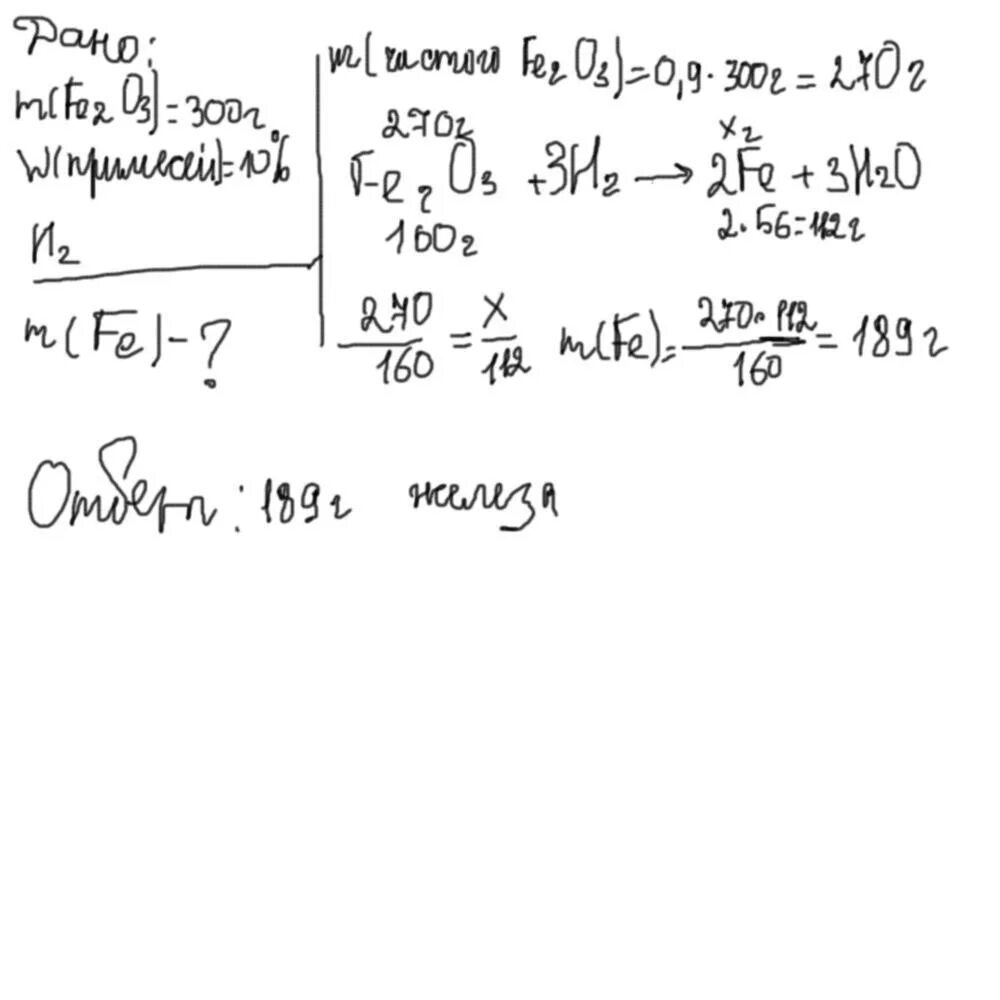 Дано:
m(Fe2O3)=300г
W(примесей)=10%
H2
m(Fe)-?
m(чистого Fe2O3)=0,9·300г=270г
270г xг
Fe2O3 +3H2 → 2Fe + 3H2O
160г 2·56=112г
270/160 = x/112 m(Fe)=270·112/160=189г
Ответ: 189г железа